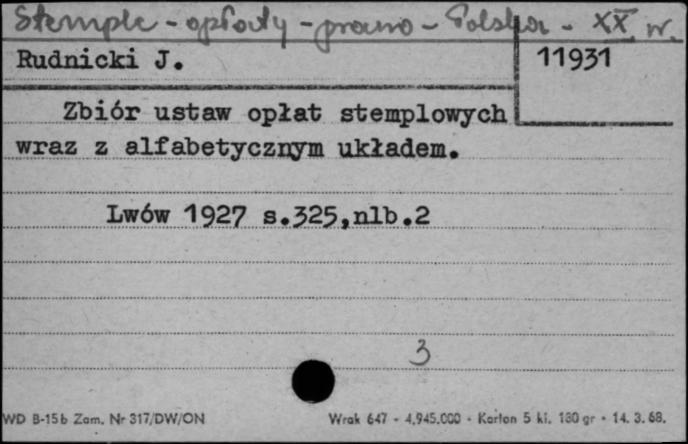 Stemple - opłaty - prawo - Polska - XX w.
Rudnicki J.
11931
Zbiór ustaw opłat stemplowych
wraz z alfabetycznym układem.
Lwów 1927 s.325,nlb.2
3
WD B-15b Zam. Nr 317/DW/ON
Wrak 647 - 4.945.000 - Karton 5 kl. 180 gr - 14. 3. 68.